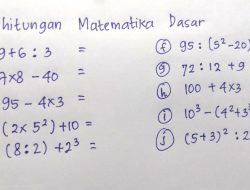 hitungan Matematika Dasar
9+6 : 3 =
7×8 - 40 =
95 - 4×3 =
(2× 5²) +10 =
(8:2) +2³ =
f 95 : (5²-20)
g 72 : 12 + 9
h 100 + 4×3
i 10³ - (4²+3²
j (5+3)² : 2